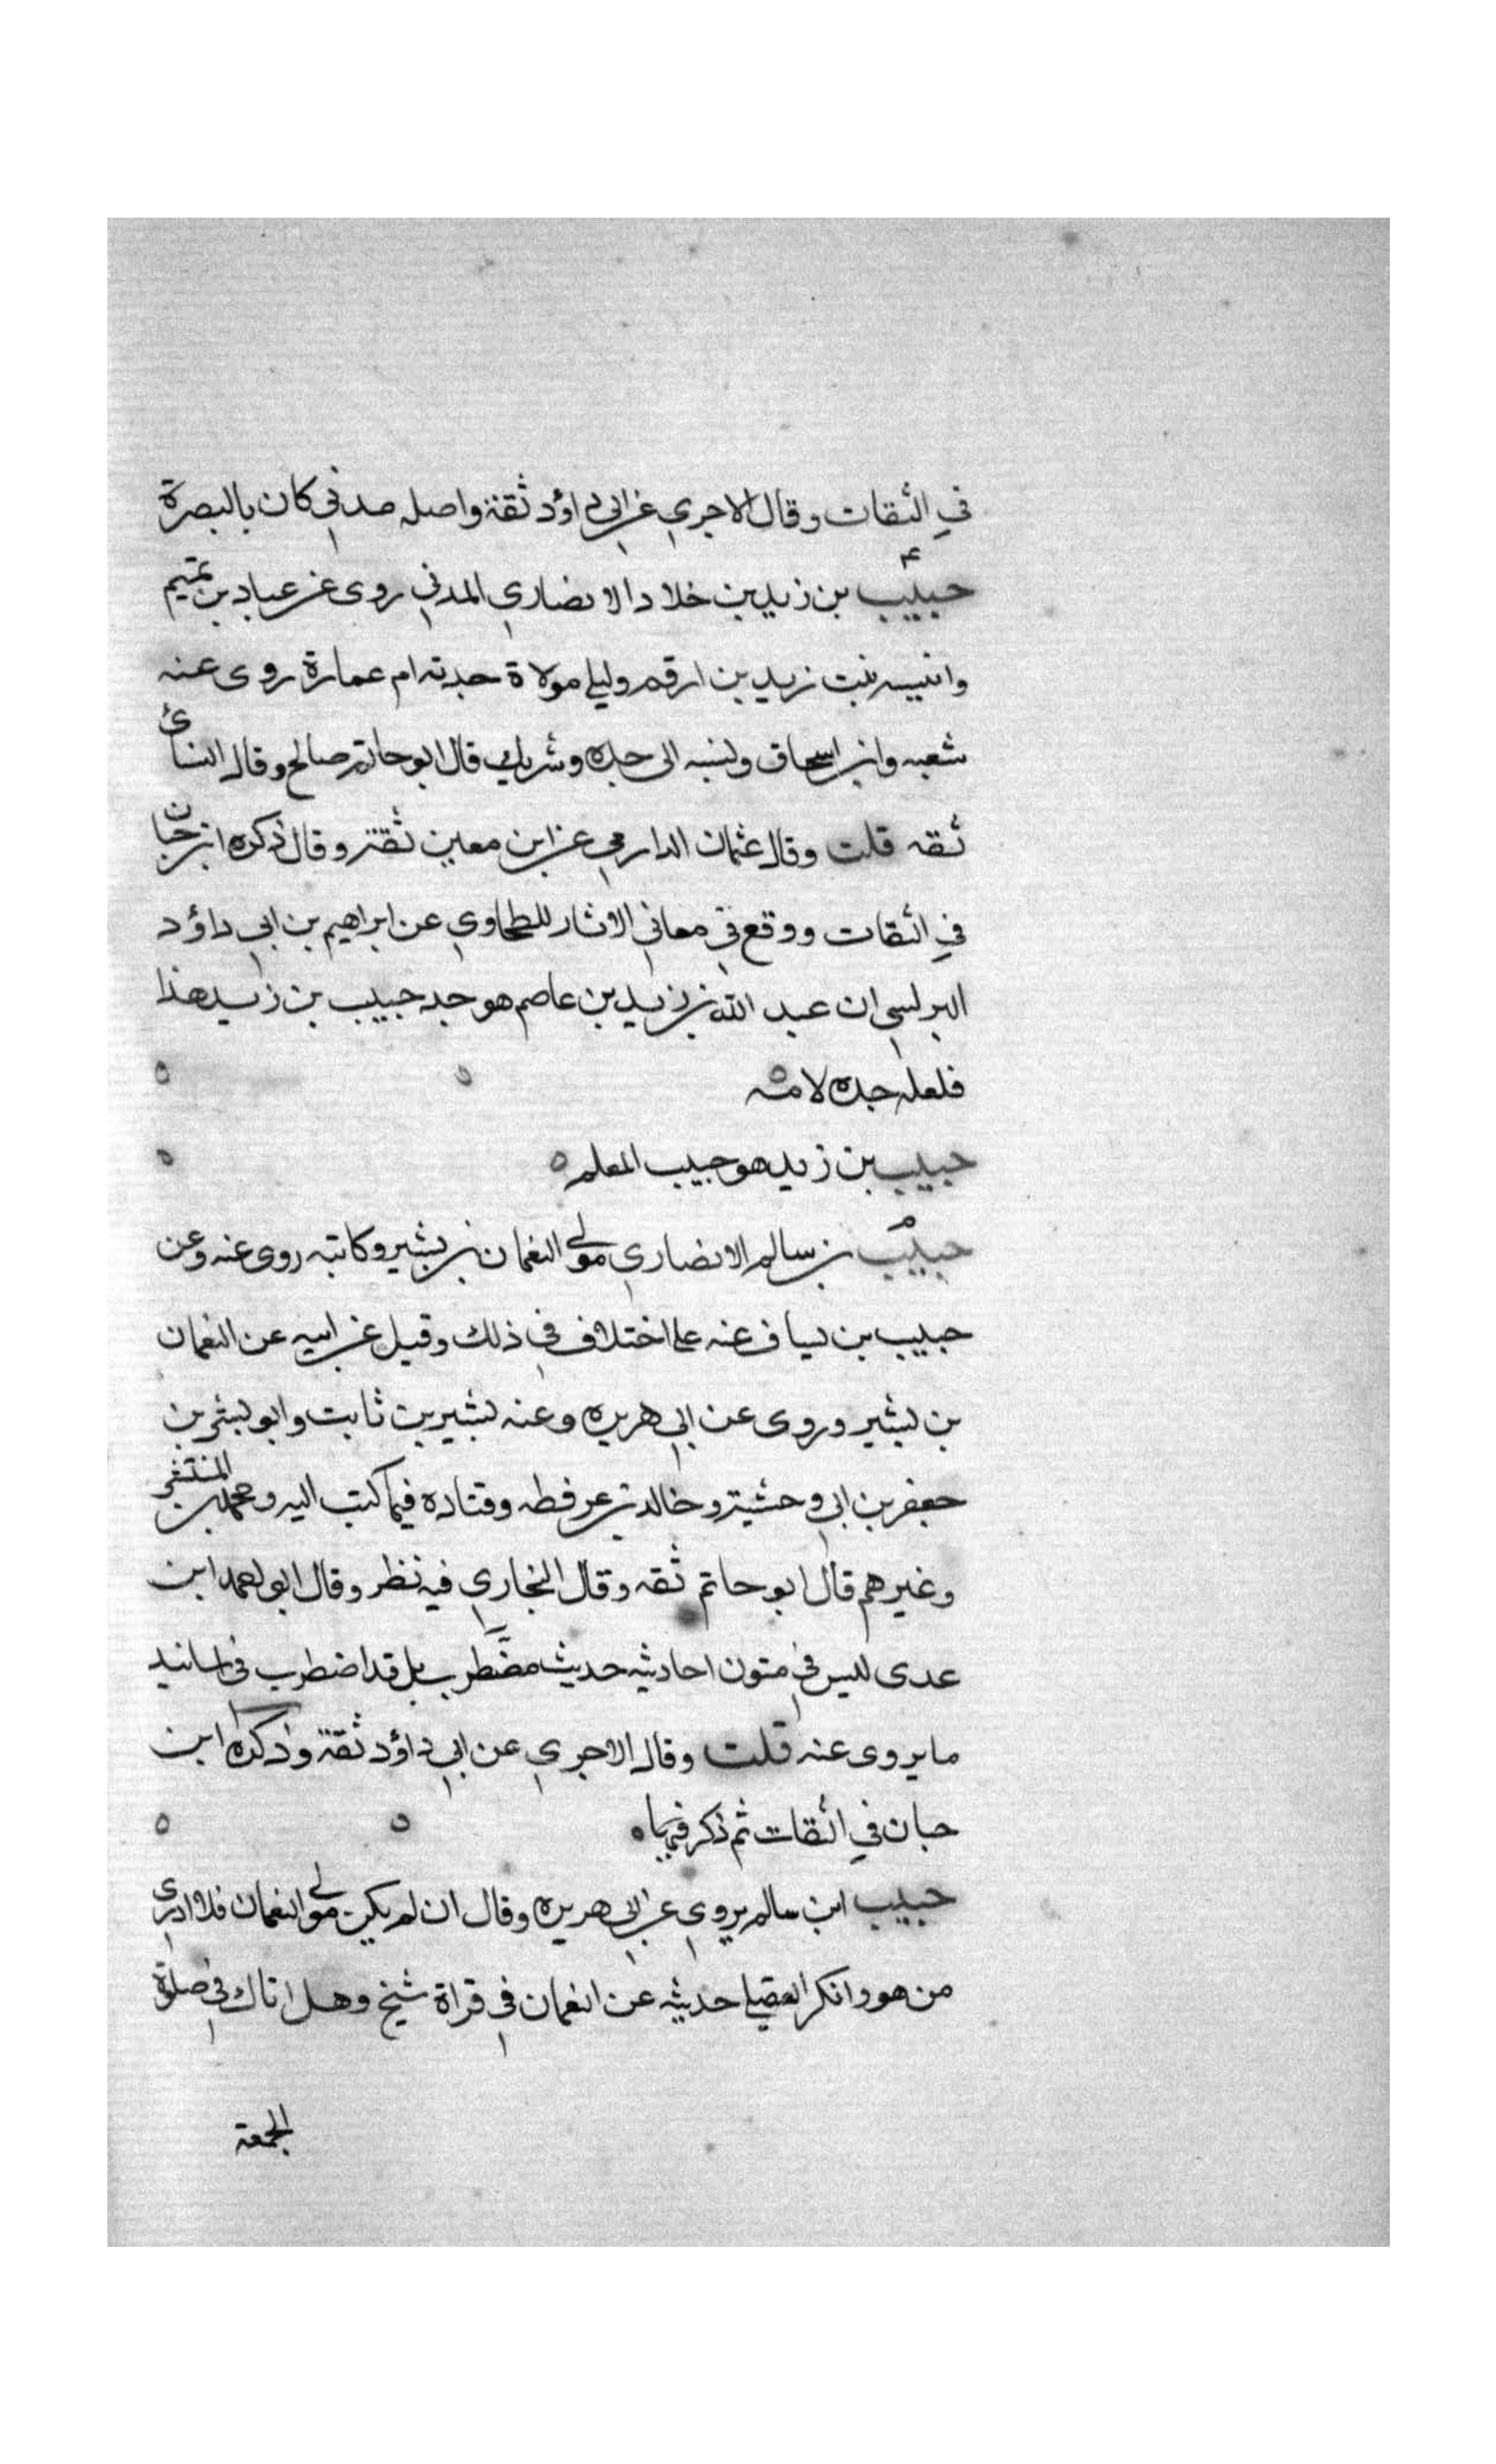 في الثقات وقال الاجري عن ابي داؤد ثقة واصله مدني كان بالبصرة
٤
حبيب بن زيد بن خلاد الانصاري المدني روى عن عباد بن تميم
وانيسه بنت زيد بن ارقم وليلي مولاة جدته ام عمارة روى عنه
شعبه وابن اسحاق ونسبه الى جده وشريك قال ابو حاتم صالح وقال النسائ
ثقه قلت وقال عثمان الدارمي عن ابن معين ثقة وقال ذكره ابن حبان
في الثقات ووقع في معاني الاثار للطحاوي عن ابراهيم بن ابي داؤد
البرلسي ان عبد الله بن زيد بن عاصم هو جد حبيب بن زيد هذا
فلعله جده لامه ه
حبيب بن زيد هو حبيب المعلم ه
م
حبيب بن سالم الانصاري مولي النعمان بن بشير وكاتبه روى عنه وعن
حبيب بن يساف عنه على اختلاف في ذلك وقيل عن ابيه عن النعمان
بن بشير وروى عن ابي هريره وعنه بشير بن ثابت وابو بشر بن
جعفر بن ابي وحشية وخالد بن عرفطه وقتاده فيما كتب اليه ومحمد بن المنتشر
وغيرهم قال ابو حاتم ثقه وقال البخاري فيه نظر وقال ابو احمد ابن
عدى ليس في متون احاديثه حديث مضطرب بل قد اضطرب في اسانيد
ما يروى عنه قلت وقال الاجري عن ابي داؤد ثقة وذكره ابن
حبان في الثقات ثم ذكر فيها ه
حبيب ابن سالم يروي عن ابي هريره وقال ان لم يكن مولي النعمان فلا ادري
من هو وانكر العقيلي حديثه عن النعمان في قراة شيخ وهل اتاك في صلوة
الجمعة